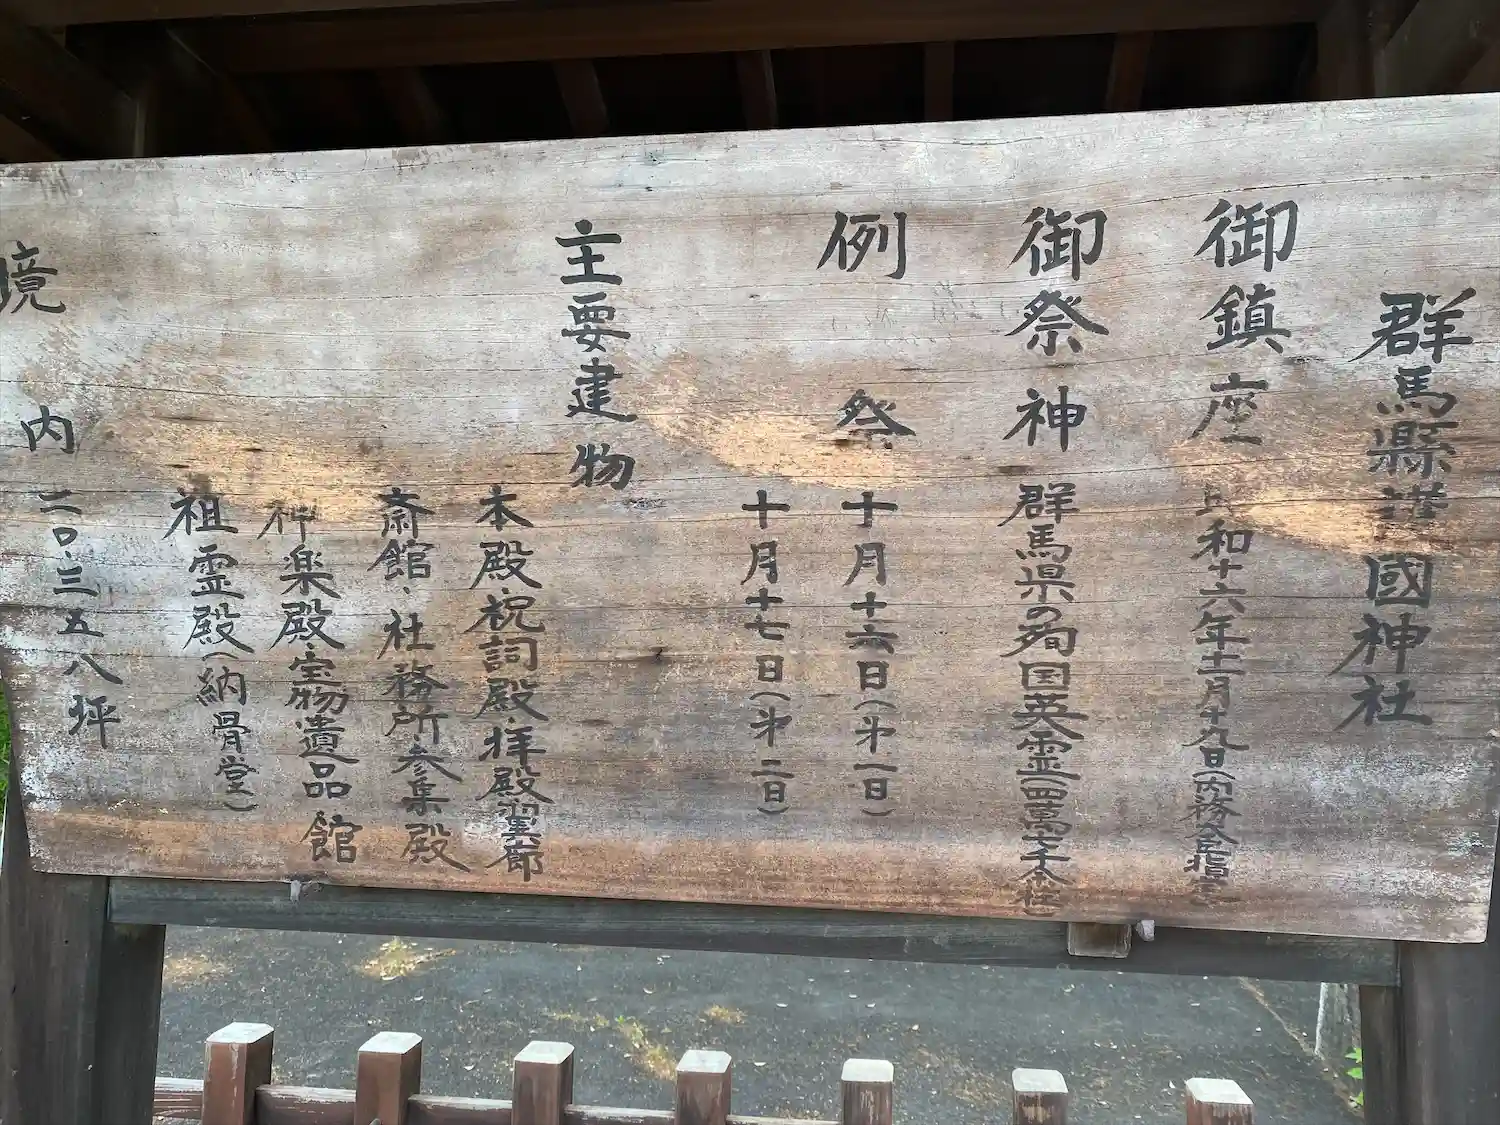 群馬縣護國神社
御鎮座 昭和十六年十一月十九日(内務大臣指定)
御祭神 群馬県の殉国英霊(四萬七千余柱)
例祭 十月十六日(第一日)
十月十七日(第二日)
主要建物
本殿・祝詞殿・拝殿・翼廊
斎館・社務所・参集殿
神楽殿・宝物遺品館
祖霊殿(納骨堂)
境内 二〇.三五八坪